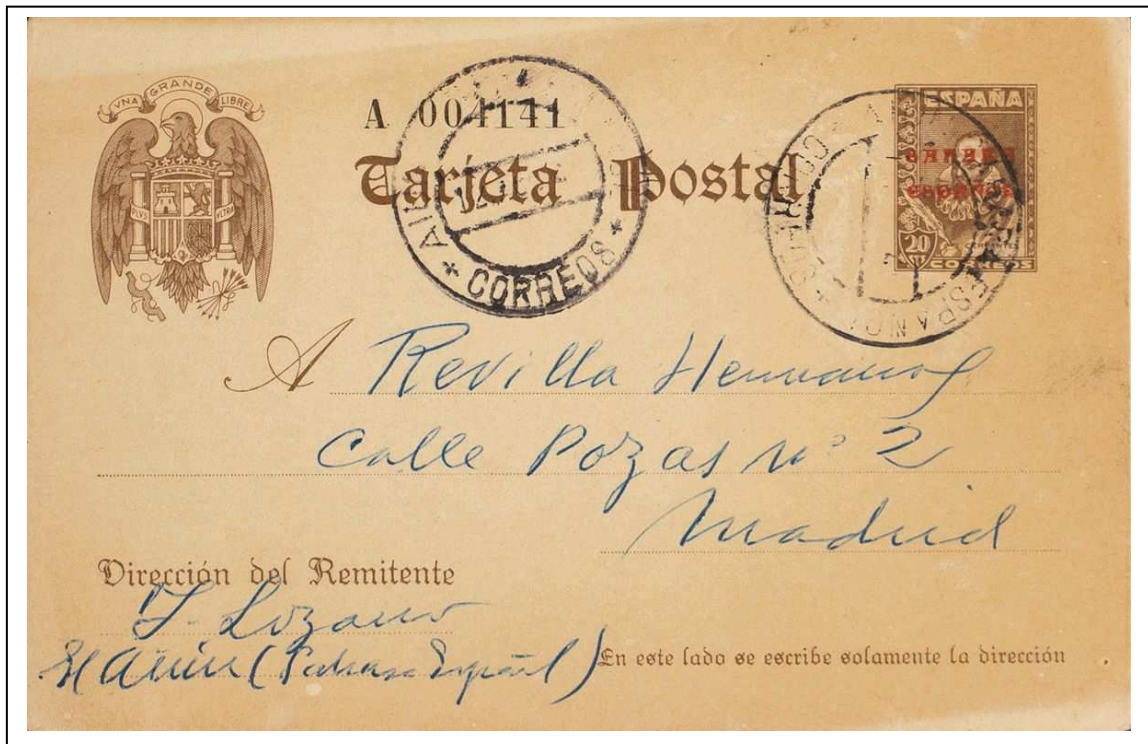 VNA GRANDE LIBRE
PLVS VLTRA
A 004141
Tarjeta Postal
* CORREOS *
ESPAÑA
SAHARA
ESPAÑOL
20
CORREOS
ESPAÑOL
A Revilla Hermanos
Calle Pozas nº 2
Madrid
Dirección del Remitente
Lozano
El Aiun (Sahara Español)
En este lado se escribe solamente la dirección